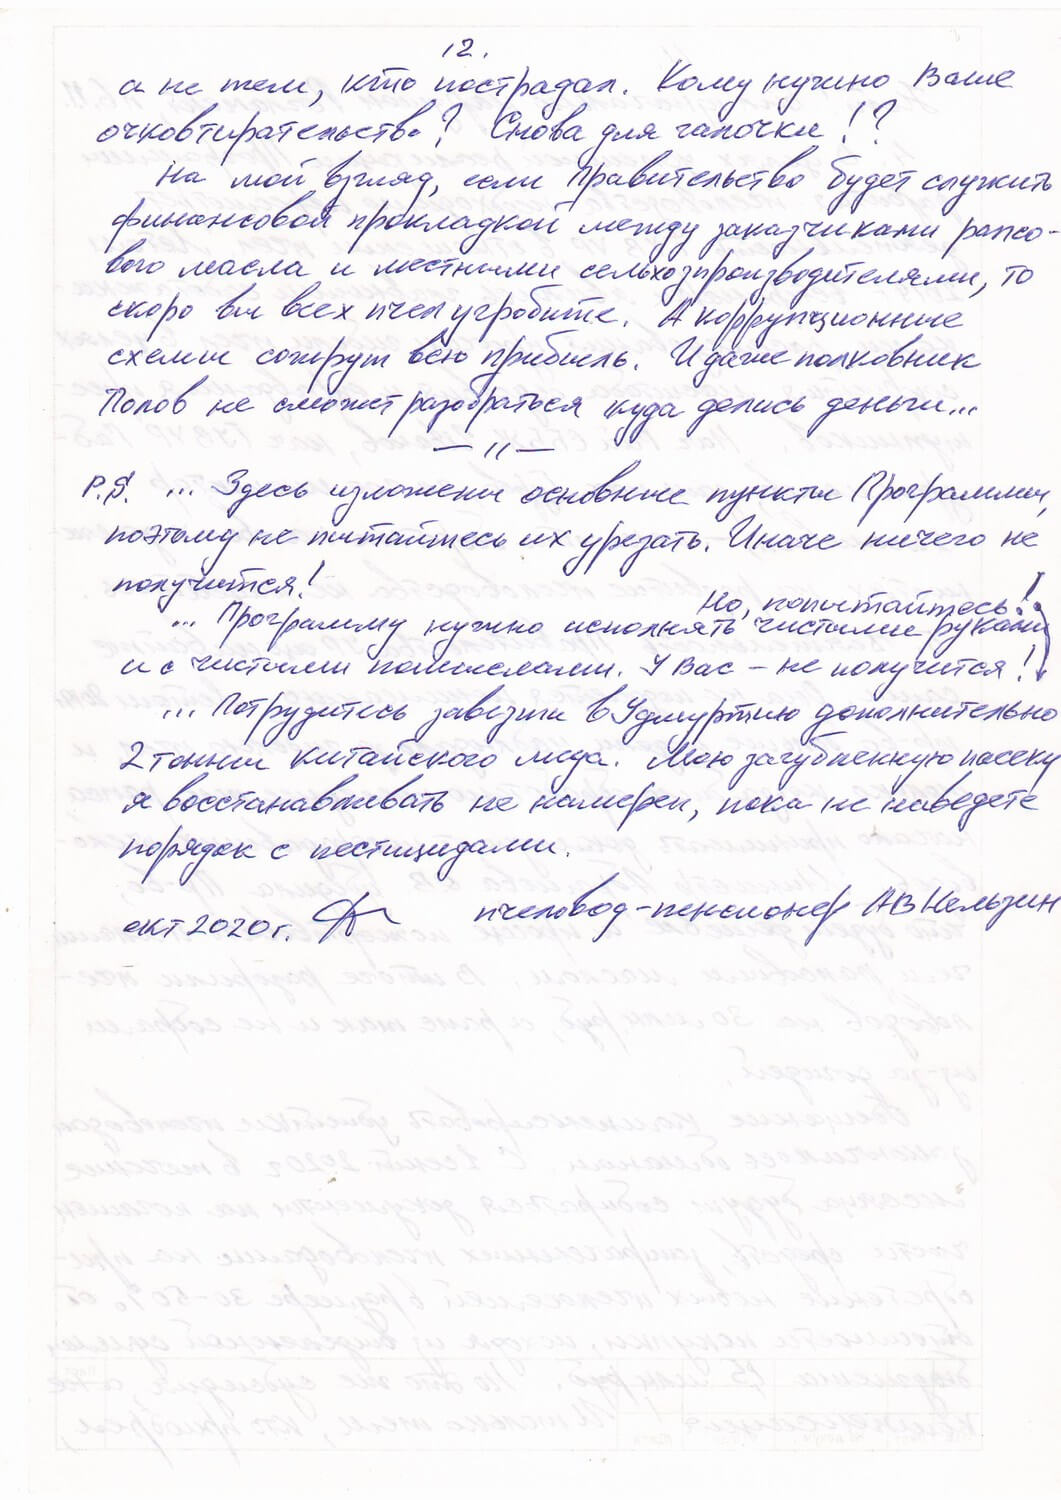 12.
а не тем, кто пострадал. Кому нужно Ваше
очковтирательство? Снова для галочки!?
На мой взгляд, если Правительство будет служить
финансовой прокладкой между заказчиками рапсо-
вого масла и местными сельхозпроизводителями, то
скоро вы всех пчел угробите. А коррупционные
схемы сожрут всю прибыль. И даже полковник
Попов не сможет разобраться куда делись деньги...
— 〃 —
P.S. ... Здесь изложены основные пункты Программы,
поэтому не пытайтесь их урезать. Иначе ничего не
получится!
Но, попытайтесь!
... Программу нужно исполнять чистыми руками
и с чистыми помыслами. У Вас – не получится!
... Потрудитесь завезти в Удмуртию дополнительно
2 тонны китайского мёда. Мою загубленную пасеку
я восстанавливать не намерен, пока не наведете
порядок с пестицидами.
окт 2020 г. пчеловод-пенсионер АВ Кельзин